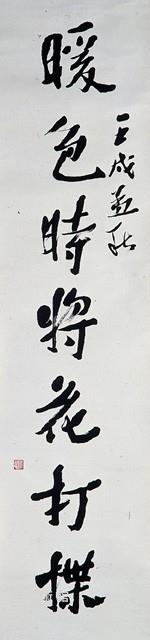 壬戌孟秋
暖色時將花打揲